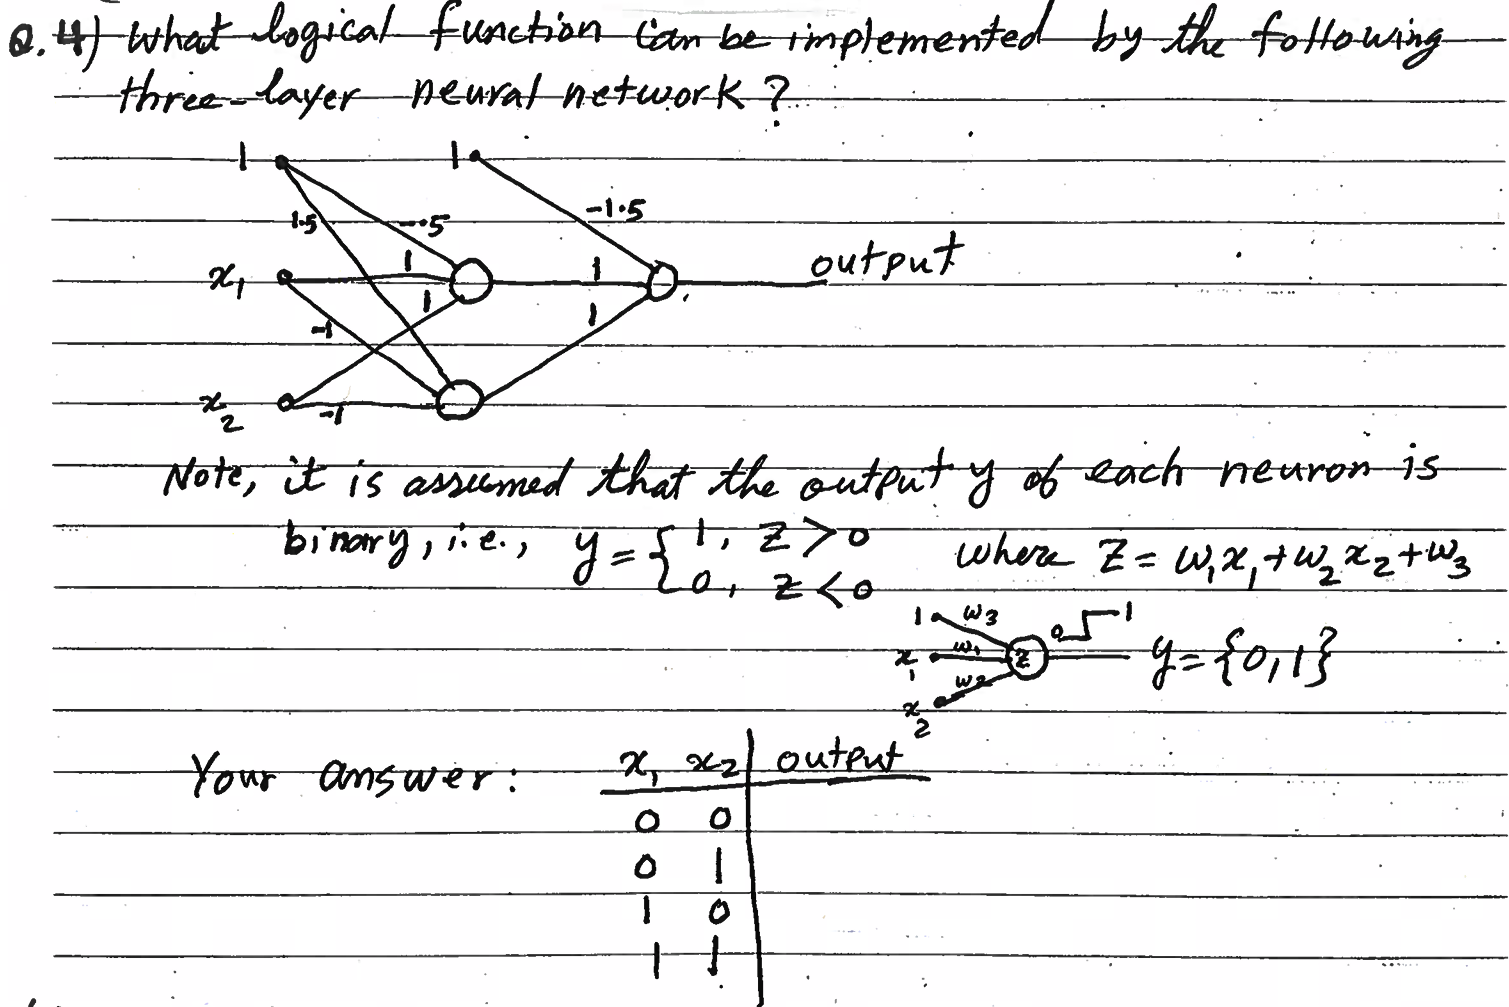 Q.4) What logical function can be implemented by the following
three-layer neural network?
1 1
1.5 -.5 -1.5
x₁ 1 1 output
1 1
-1
x₂ -1
Note, it is assumed that the output y of each neuron is
binary, i.e., y = { 1, z > 0 where z = w₁x₁ + w₂x₂ + w₃
0, z < 0
1 w₃ 0 1
x₁ w₁ z y = {0,1}
x₂ w₂
Your answer: x₁ x₂ output
0 0
0 1
1 0
1 1